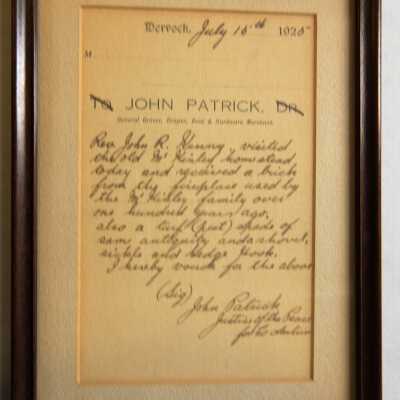 Dervock, July 15th 1925
M
TO JOHN PATRICK, DR.
General Grocer, Draper, Seed & Hardware Merchant.
Rev. John R. Kenny, visited
the old McKinley homestead
today and received a brick
from the fireplace used by
the McKinley family over
one hundred years ago,
also a turf (peat) spade of
same antiquity and a shovel,
sickle and hedge Hook.
I hereby vouch for the above
(Sig)
John Patrick
Justice of the Peace
for Co Antrim